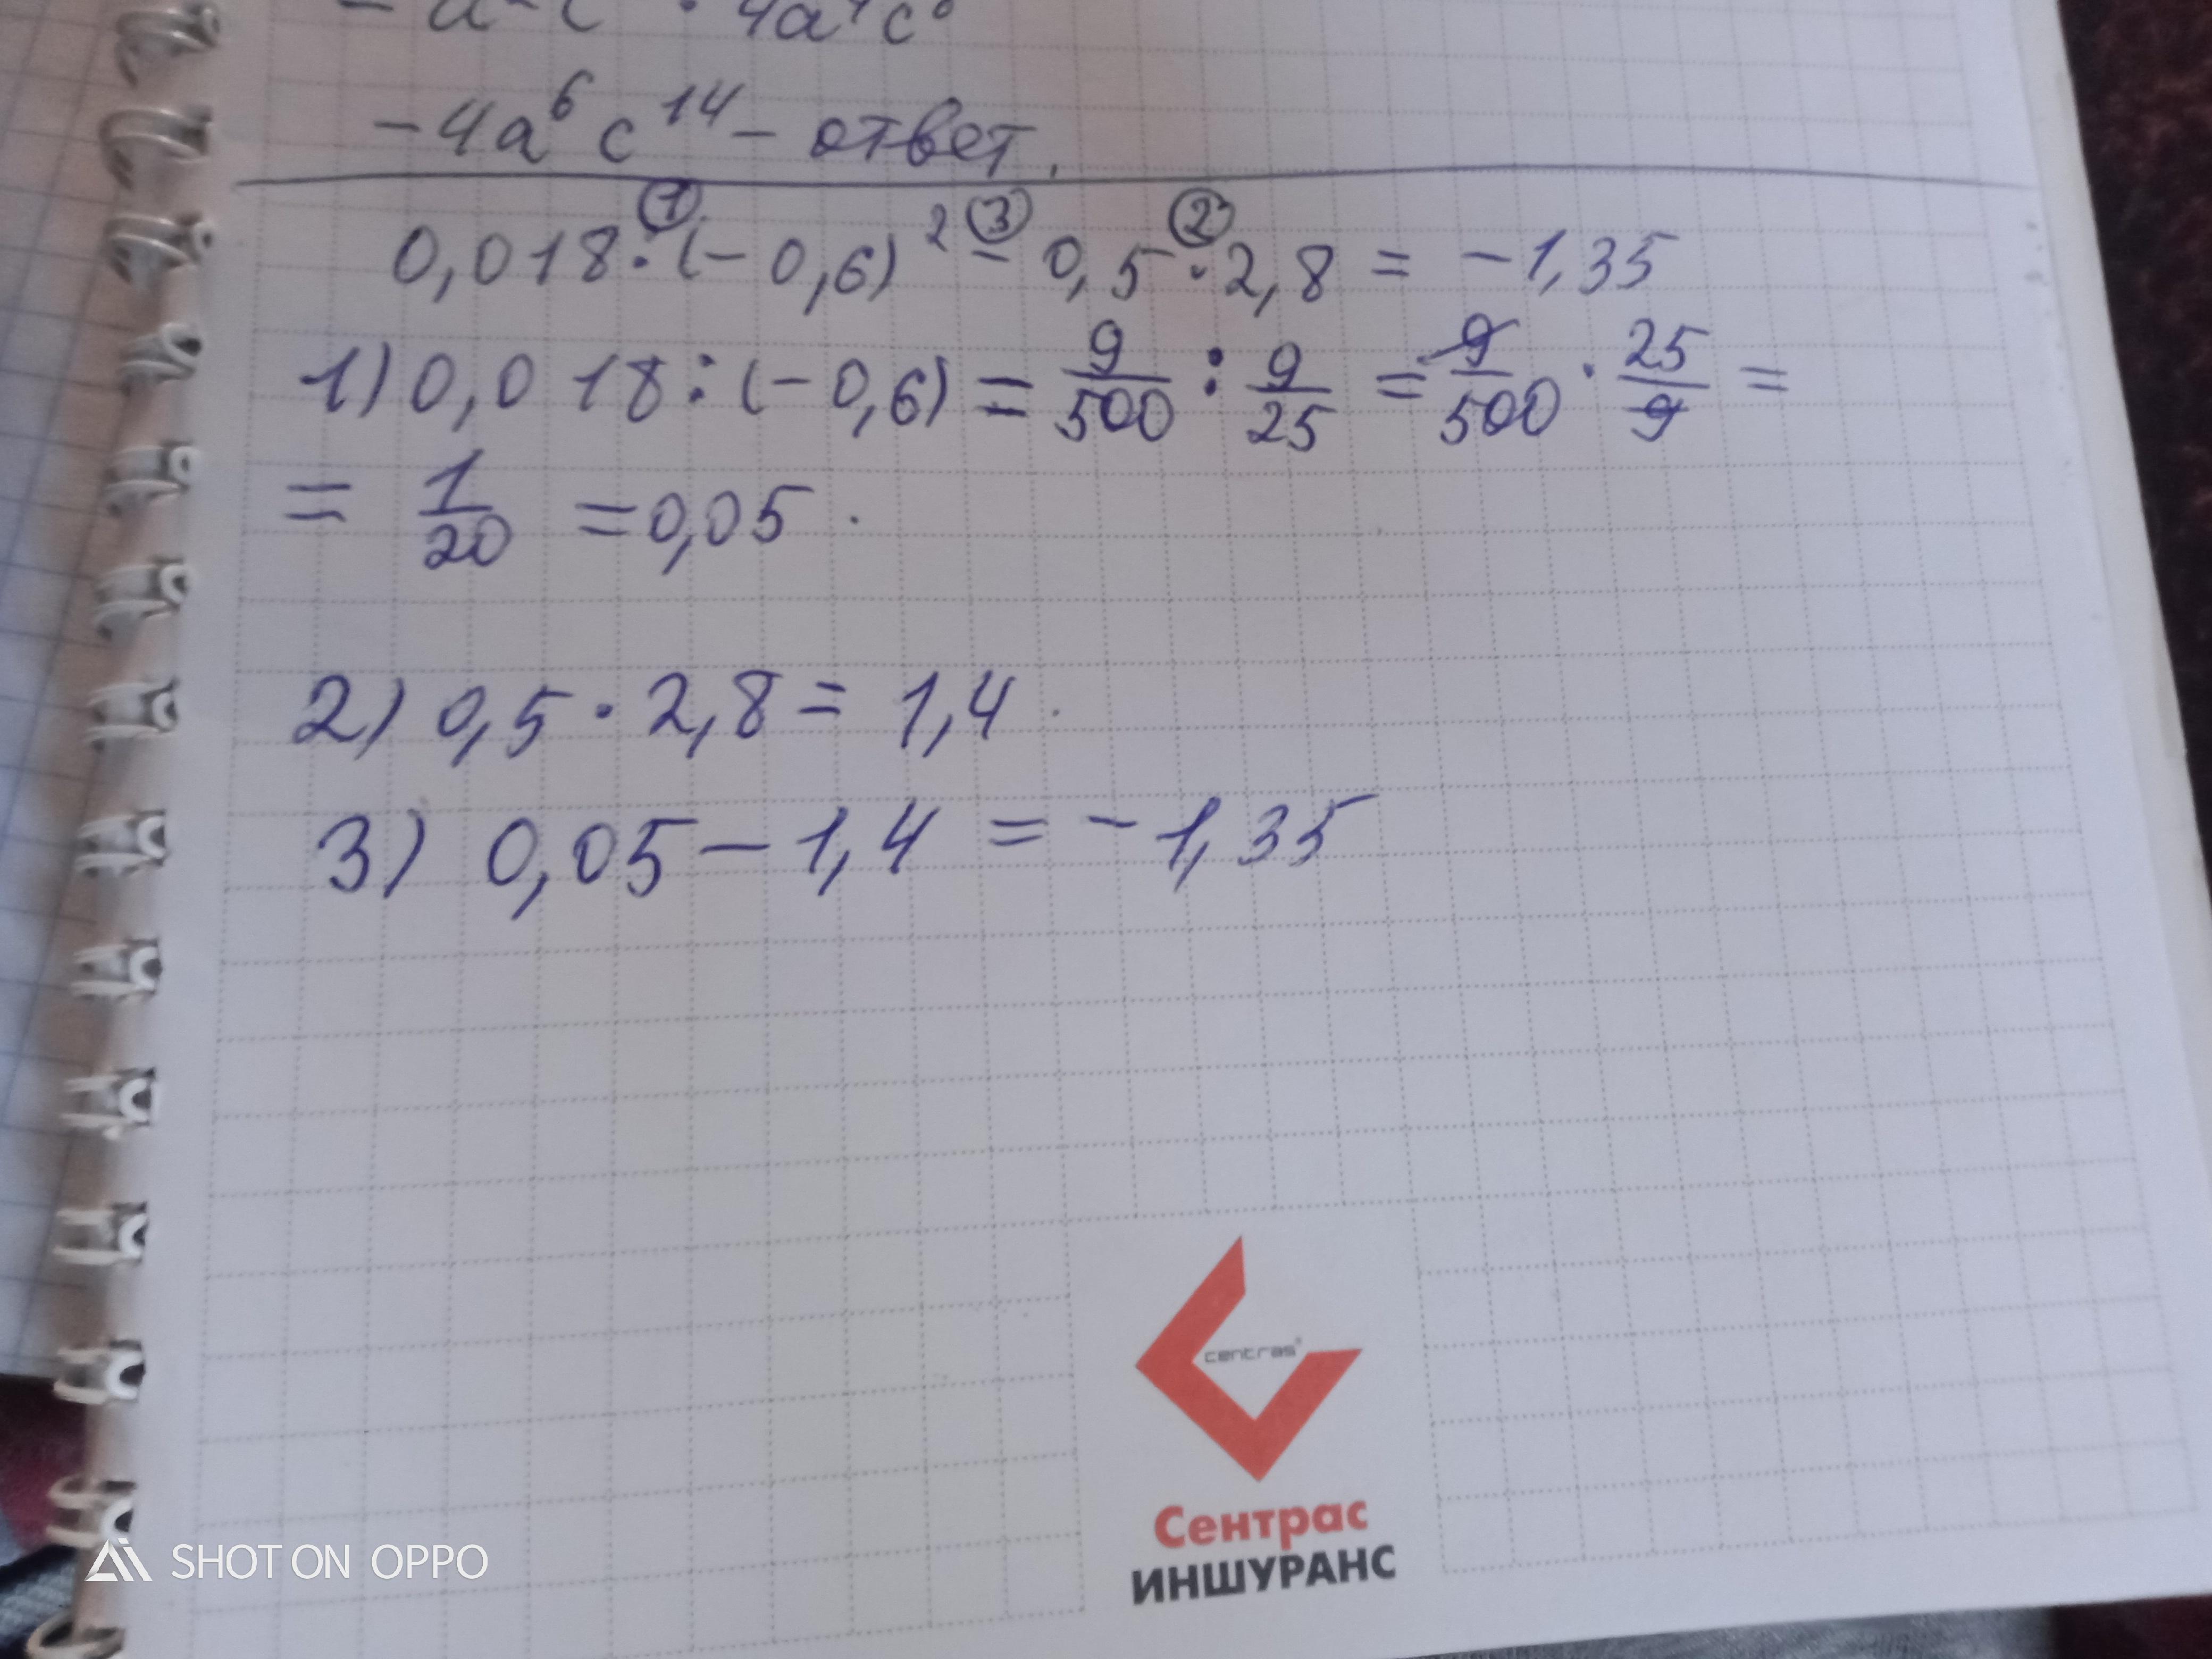 -4a⁶c¹⁴ - ответ.
① ③ ②
0,018:(-0,6)² - 0,5·2,8 = -1,35
1) 0,018:(-0,6) = 9/500 : 9/25 = 9/500 · 25/9 =
= 1/20 = 0,05.
2) 0,5·2,8 = 1,4.
3) 0,05 - 1,4 = -1,35
centras®
Сентрас
ИНШУРАНС
SHOT ON OPPO